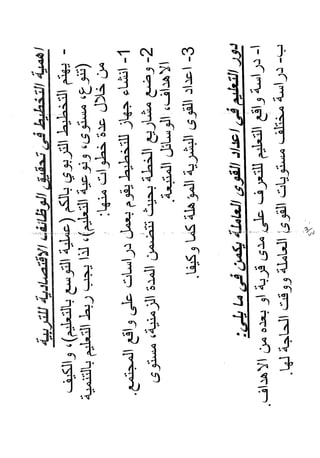 اهمية التخطيط في تحقيق الوظائف الاقتصادية للتربية
- يهتم التخطيط التربوي بالكم (عملية التوسع بالتعليم)، والكيف
(تنوع، مستوى، ونوعية التعليم)، لذا يجب ربط التعليم بالتنمية
من خلال عدة خطوات منها:
1- انشاء جهاز للتخطيط يقوم بعمل دراسات على واقع المجتمع.
2- وضع مشاريع الخطة بحيث تتضمن المدة الزمنية، مستوى
الاهداف، الوسائل المتبعة.
3- اعداد القوى البشرية المؤهلة كما وكيفا.
دور التعليم في اعداد القوى العاملة يكمن في ما يلي:
أ- دراسة واقع التعليم للتعرف على مدى قربة او بعده من الاهداف.
ب- دراسة مختلف مستويات القوى العاملة ووقت الحاجة لها.